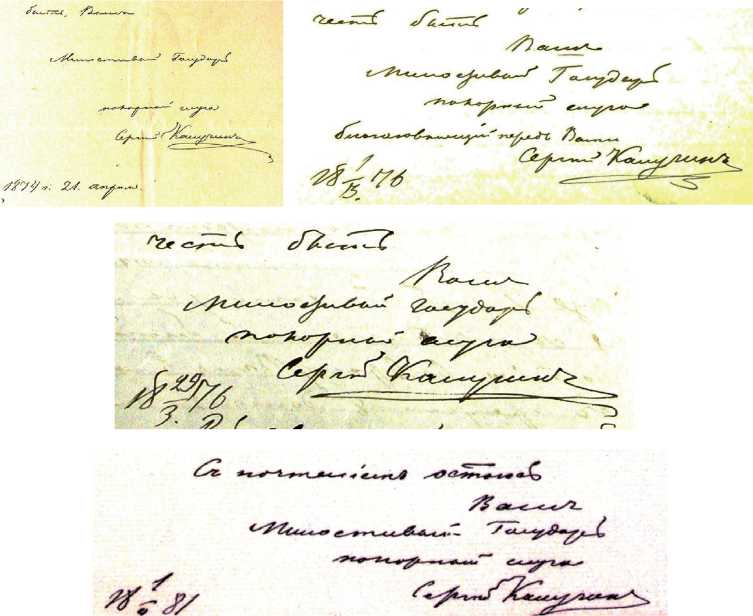 быть, Вашъ
Милостивый Государь
покорный слуга
Сергѣй Калугинъ
1874 г. 21. апрѣля.
честь быть
Вашъ
Милостивый Государь
покорный слуга
благоговѣющій передъ Вами
Сергѣй Калугинъ
18 1/3. 76
честь быть
Вашъ
Милостивый государь
покорный слуга
Сергѣй Калугинъ
18 29/3. 76
Съ почтеніемъ остаюсь
Вашъ
Милостивый Государь
покорный слуга
Сергѣй Калугинъ
18 1/ 81